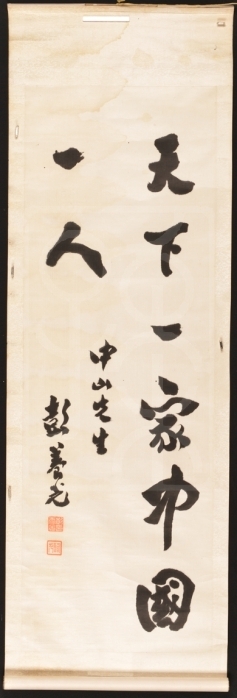 天下一家中國
一人
中山先生
彭養光